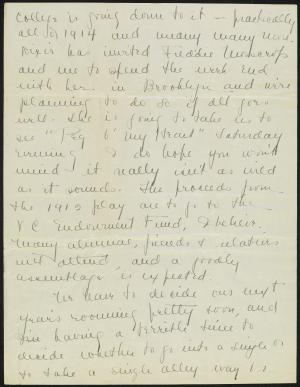 college is going down to it — practically
all of 1914 and many many more.
Dixie has invited Freddie
and me to spend the week end
with her in Brooklyn and we're
planning to do so if all goes
well. She is going to take us to
see "Peg o' my Heart" Saturday
evening. I do hope you won't
mind - it really isn't as wild
as it sounds. The proceeds from
the 1912 play are to go to the
V C Endowment Fund, I believe.
Many alumnae, friends & relatives
will attend and a goodly
assemblage is expected.
We have to decide our next
year's rooming pretty soon, and
I'm having a terrible time to
decide whether to go into a single or
to take a single alley way